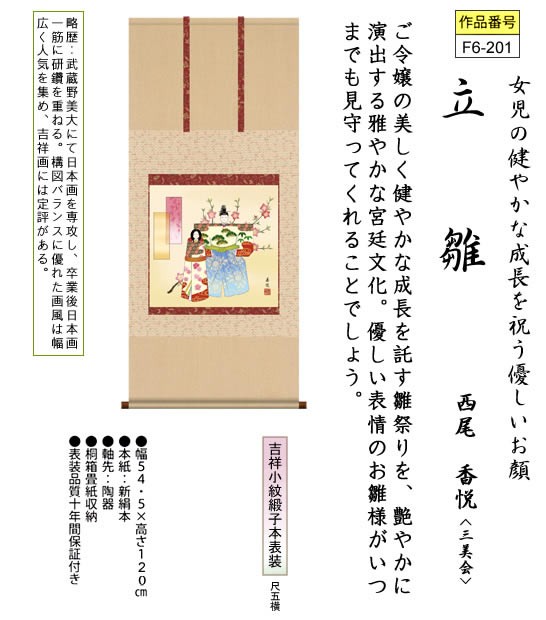 作品番号
F6-201
女児の健やかな成長を祝う優しいお顔
立 雛
西尾 香悦〈三美会〉
ご令嬢の美しく健やかな成長を託す雛祭りを、艶やかに
演出する雅やかな宮廷文化。優しい表情のお雛様がいつ
までも見守ってくれることでしょう。
略歴：武蔵野美大にて日本画を専攻し、卒業後日本画
一筋に研鑽を重ねる。構図バランスに優れた画風は幅
広く人気を集め、吉祥画には定評がある。
吉祥小紋緞子本表装
尺五横
●幅54・5×高さ120㎝
●本紙：新絹本
●軸先：陶器
●桐箱畳紙収納
●表装品質十年間保証付き